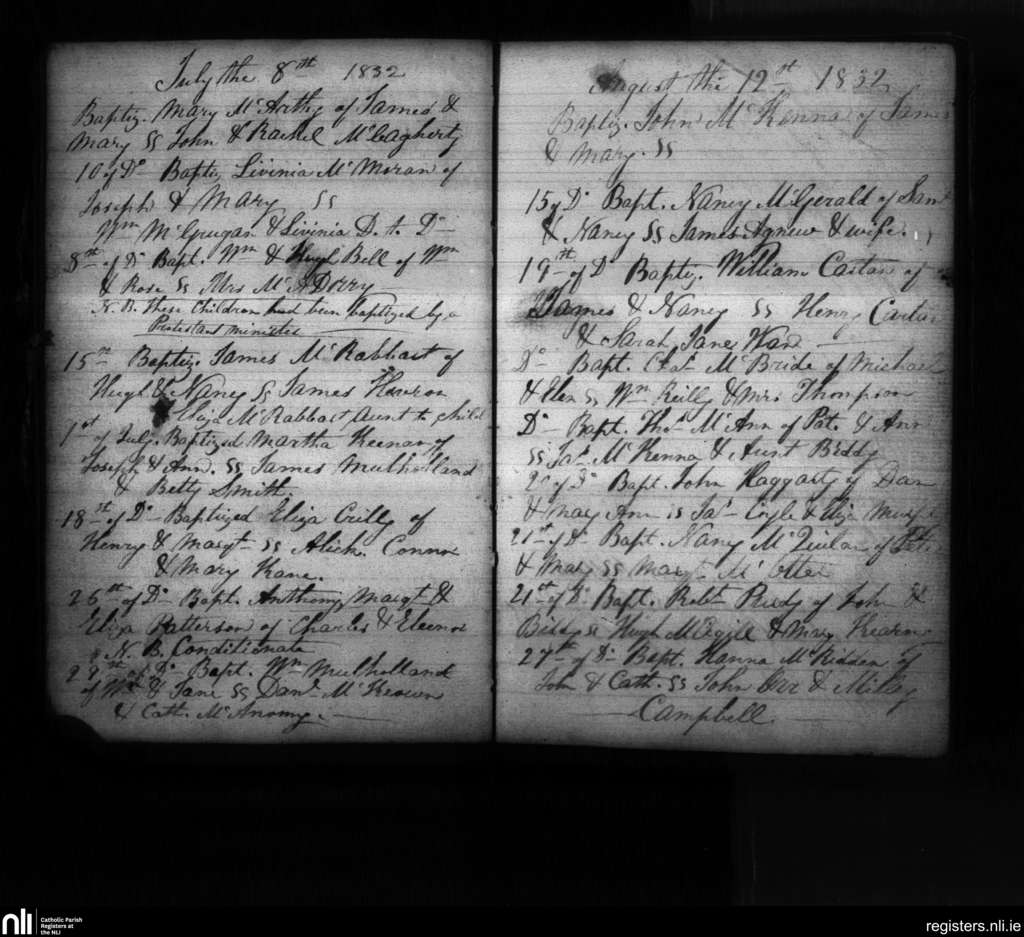 July the 8th 1832
Baptiz. Mary McArthy of James &
Mary SS John & Rachel McCagherty
10 of Do Baptiz Livinia McMoran of
Joseph & Mary SS
Wm McGrugan & Livinia D. to Do
8th of Do Bapt. Wm & Hugh Bell of Wm
& Rose SS Mrs McAdorry
N. B. These Children had been baptized by a
Protestant minister
15th Baptiz. James McRabbat of
Hugh & Nancy SS James
Eliza McRabbat Aunt to child
1st of July. Baptized Martha Keenan of
Joseph & Ann. SS James Mulholland
& Betty Smith.
18th of Do Baptized Eliza Crilly of
Henry & Margt SS Alick. Connor
& Mary Kane.
26th of Do Bapt. Anthony, Margt &
Eliza Patterson of Charles & Eleenor
N. B. Conditionate
29th of Do Bapt. Wm Mulholland
of Wm & Jane SS Danl McKeown
& Cath.
August the 12st 1832
Baptiz. John McKenna of James
& Mary. SS
15 of Do Bapt. Nancy McGerald of Saml
& Nancy SS James Agnew & wife.
19th of Do Baptiz. William Carton of
James & Nancy SS Henry Carton
& Sarah Jane Ward
Do Bapt. McBride of Michael
& Elen SS Wm Reilly & Mrs Thompson
Do Bapt. Thos McAnn of Pat. & Ann
SS Jas McKenna & Aunt Biddy
20 of Do Bapt. John Haggarty of Dan
& Mary Ann SS Jas Coyle & Eliza
21st of Do Bapt. Nancy McQuilan of
& Mary SS Margt
21st of Do Bapt. Robt of John &
Biddy SS Hugh & Mary Kearns
27th of Do Bapt. Hanna of
John & Cath. SS John Orr & Milley
Campbell
nli
Catholic Parish
Registers at
the NLI
registers.nli.ie